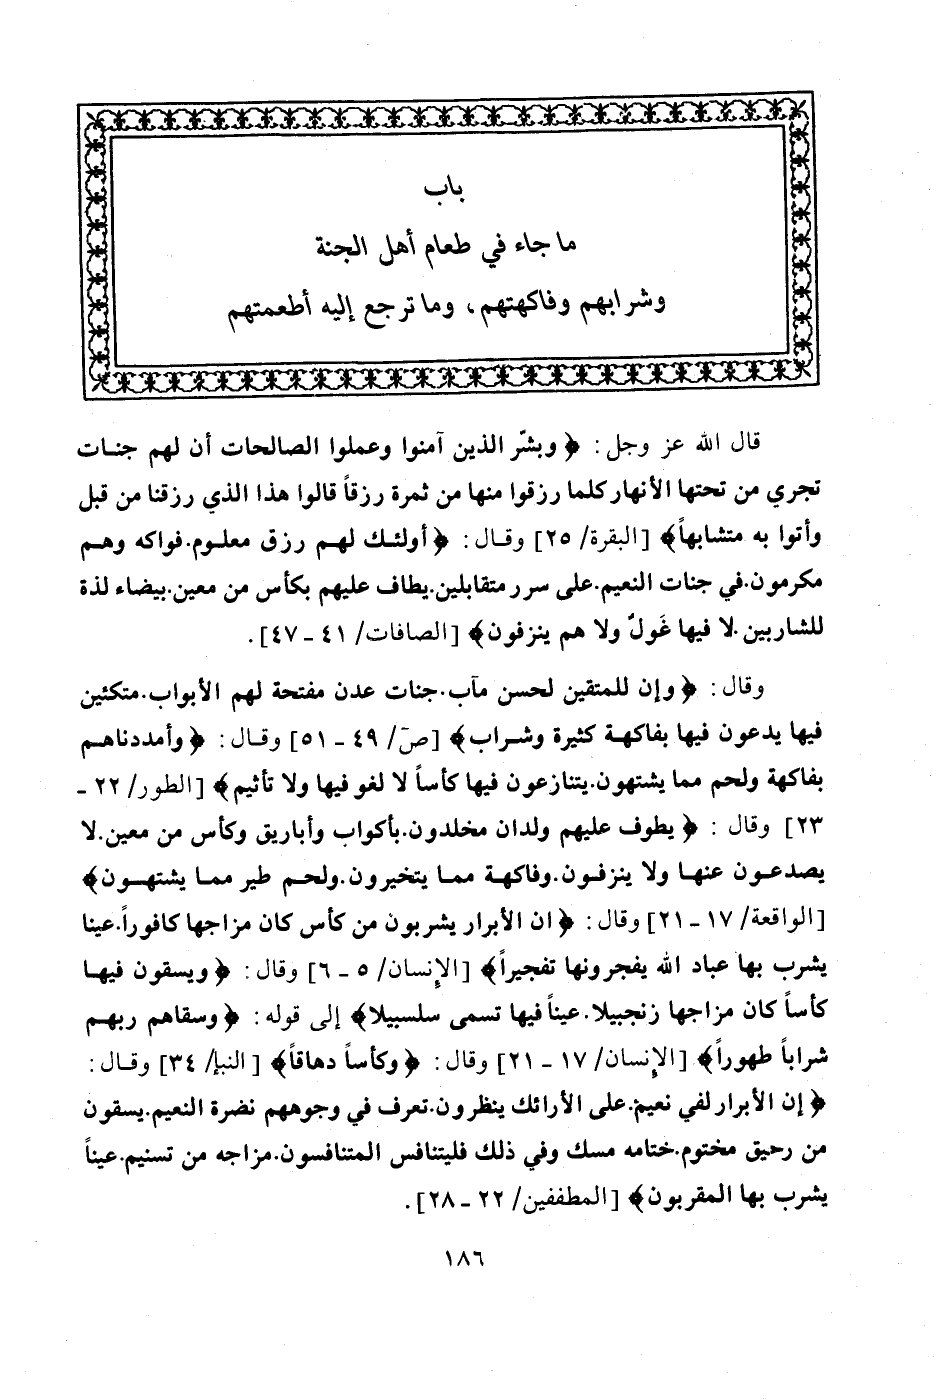 باب
ما جاء في طعام أهل الجنة
وشرابهم وفاكهتهم، وما ترجع إليه أطعمتهم
قال الله عز وجل : ﴿ وبشّر الذين آمنوا وعملوا الصالحات أن لهم جنـات
تجري من تحتها الأنهار كلما رزقوا منها من ثمرة رزقاً قالوا هذا الذي رزقنا من قبل
وأتوا به متشابهاً﴾ [البقرة/ ٢٥] وقـال : ﴿ أولئـك لهـم رزق معلـوم.فواكه وهـم
مكرمون.في جنات النعيم.على سرر متقابلين.يطاف عليهم بكأس من معين.بيضاء لذة
للشاربين.لا فيها غَولٌ ولا هم ينزفون﴾ [الصافات/ ٤١ ـ ٤٧].
وقال : ﴿ وإن للمتقين لحسن مآب.جنات عدن مفتحة لهم الأبواب.متكئين
فيها يدعون فيها بفاكهـة كثيرة وشـراب﴾ [صٓ/ ٤٩ ـ ٥١] وقـال : ﴿ وأمددناهـم
بفاكهة ولحم مما يشتهون.يتنازعون فيها كأساً لا لغو فيها ولا تأثيم﴾ [الطور/ ٢٢ ـ
٢٣] وقال : ﴿ يطوف عليهم ولدان مخلدون.بأكواب وأباريق وكأس من معين.لا
يصدعـون عنهـا ولا ينزفـون.وفاكهـة ممـا يتخيرون.ولحـم طير ممـا يشتهـون﴾
[الواقعة/ ١٧ ـ ٢١] وقال : ﴿ ان الأبرار يشربون من كأس كان مزاجها كافوراً.عينا
يشرب بها عباد الله يفجرونها تفجيراً﴾ [الإنسان/ ٥ ـ ٦] وقال : ﴿ ويسقون فيهـا
كأساً كان مزاجها زنجبيلا.عيناً فيها تسمى سلسبيلا﴾ إلى قوله : ﴿ وسقاهم ربهـم
شراباً طهوراً﴾ [الإنسان/ ١٧ ـ ٢١] وقال : ﴿ وكأساً دهاقاً﴾ [النبإ/ ٣٤] وقـال :
﴿ إن الأبرار لفي نعيم.على الأرائك ينظرون.تعرف في وجوههم نضرة النعيم.يسقون
من رحيق مختوم.ختامه مسك وفي ذلك فليتنافس المتنافسون.مزاجه من تسنيم.عيناً
يشرب بها المقربون﴾ [المطففين/ ٢٢ ـ ٢٨].
١٨٦